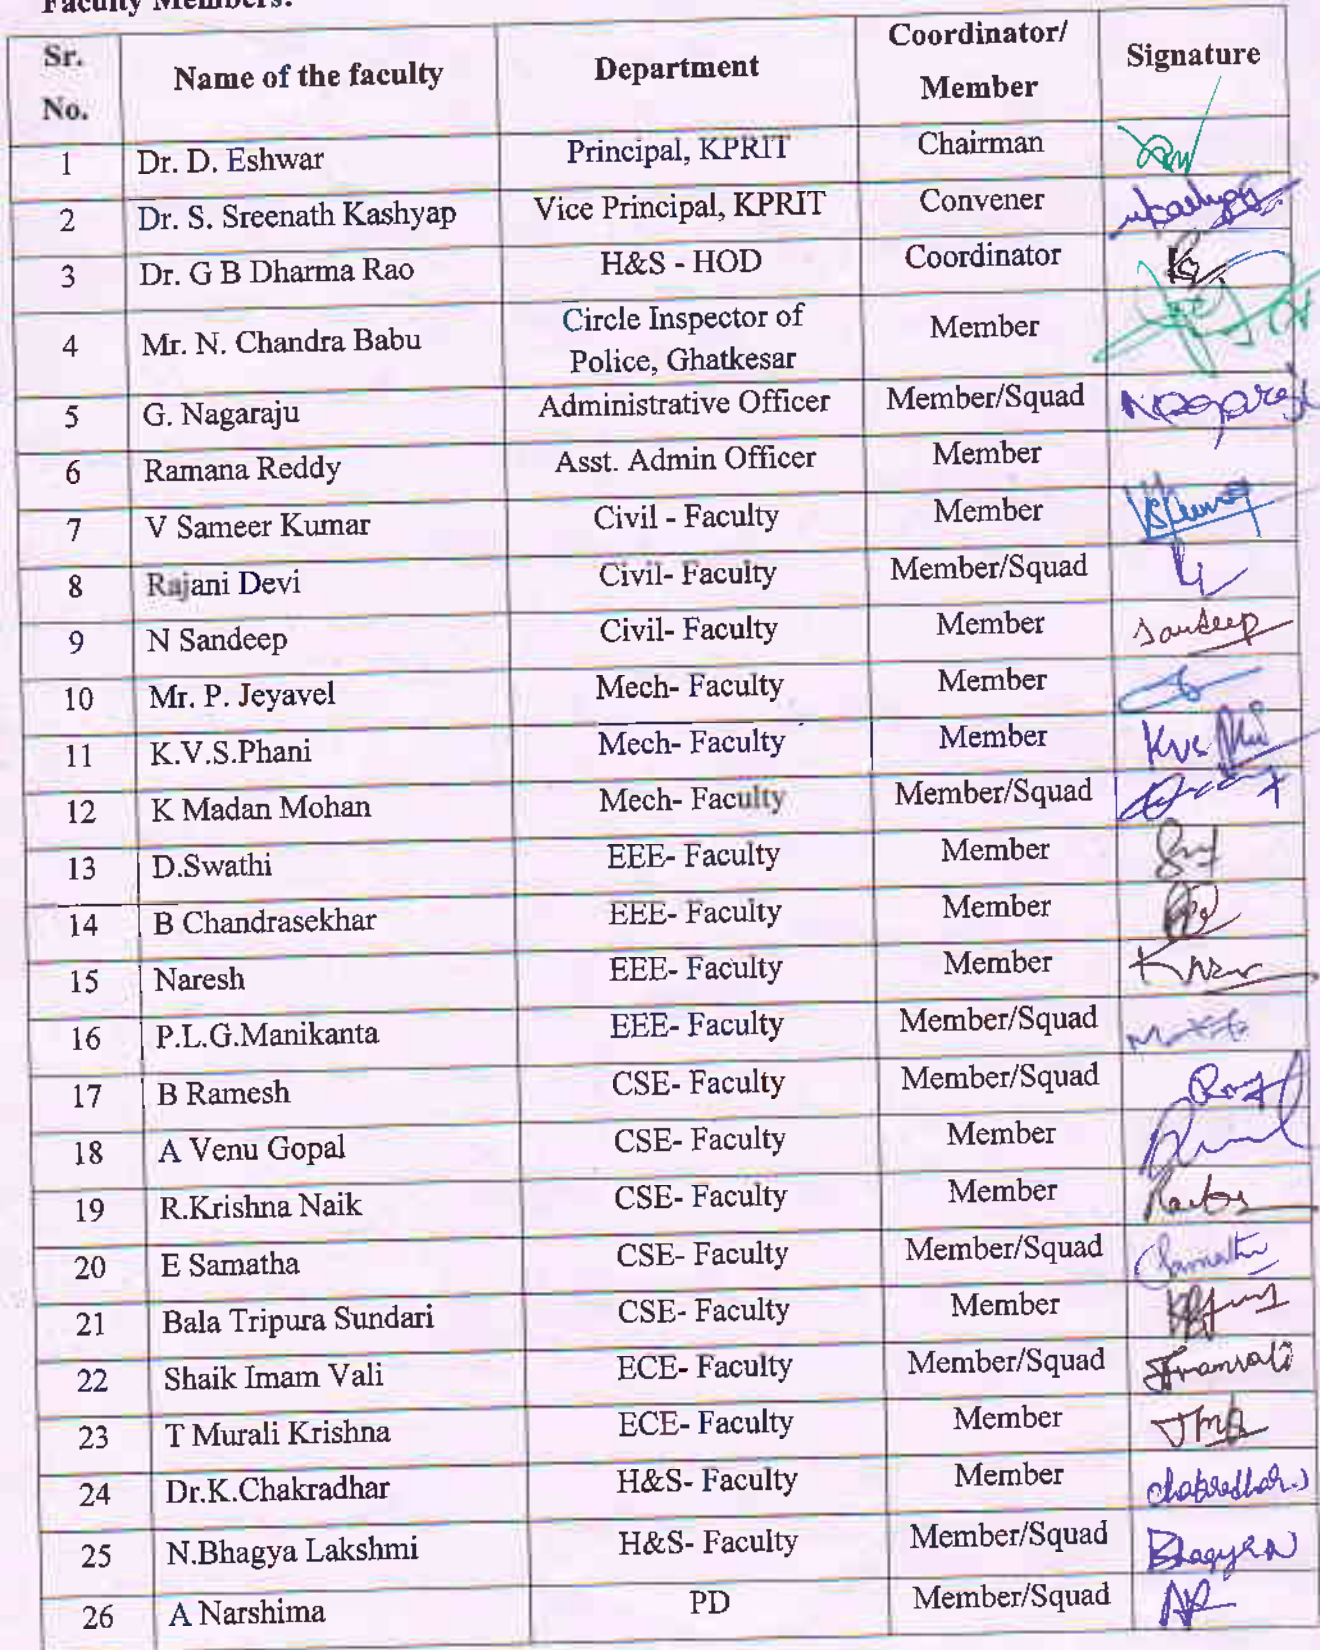 Faculty Members:
Sr. No. Name of the faculty Department Coordinator/ Member Signature
1 Dr. D. Eshwar Principal, KPRIT Chairman
2 Dr. S. Sreenath Kashyap Vice Principal, KPRIT Convener
3 Dr. G B Dharma Rao H&S - HOD Coordinator
4 Mr. N. Chandra Babu Circle Inspector of Police, Ghatkesar Member
5 G. Nagaraju Administrative Officer Member/Squad
6 Ramana Reddy Asst. Admin Officer Member
7 V Sameer Kumar Civil - Faculty Member
8 Rajani Devi Civil- Faculty Member/Squad
9 N Sandeep Civil- Faculty Member Sandeep
10 Mr. P. Jeyavel Mech- Faculty Member
11 K.V.S.Phani Mech- Faculty Member
12 K Madan Mohan Mech- Faculty Member/Squad
13 D.Swathi EEE- Faculty Member
14 B Chandrasekhar EEE- Faculty Member
15 Naresh EEE- Faculty Member
16 P.L.G.Manikanta EEE- Faculty Member/Squad
17 B Ramesh CSE- Faculty Member/Squad
18 A Venu Gopal CSE- Faculty Member
19 R.Krishna Naik CSE- Faculty Member
20 E Samatha CSE- Faculty Member/Squad
21 Bala Tripura Sundari CSE- Faculty Member
22 Shaik Imam Vali ECE- Faculty Member/Squad
23 T Murali Krishna ECE- Faculty Member
24 Dr.K.Chakradhar H&S- Faculty Member
25 N.Bhagya Lakshmi H&S- Faculty Member/Squad
26 A Narshima PD Member/Squad